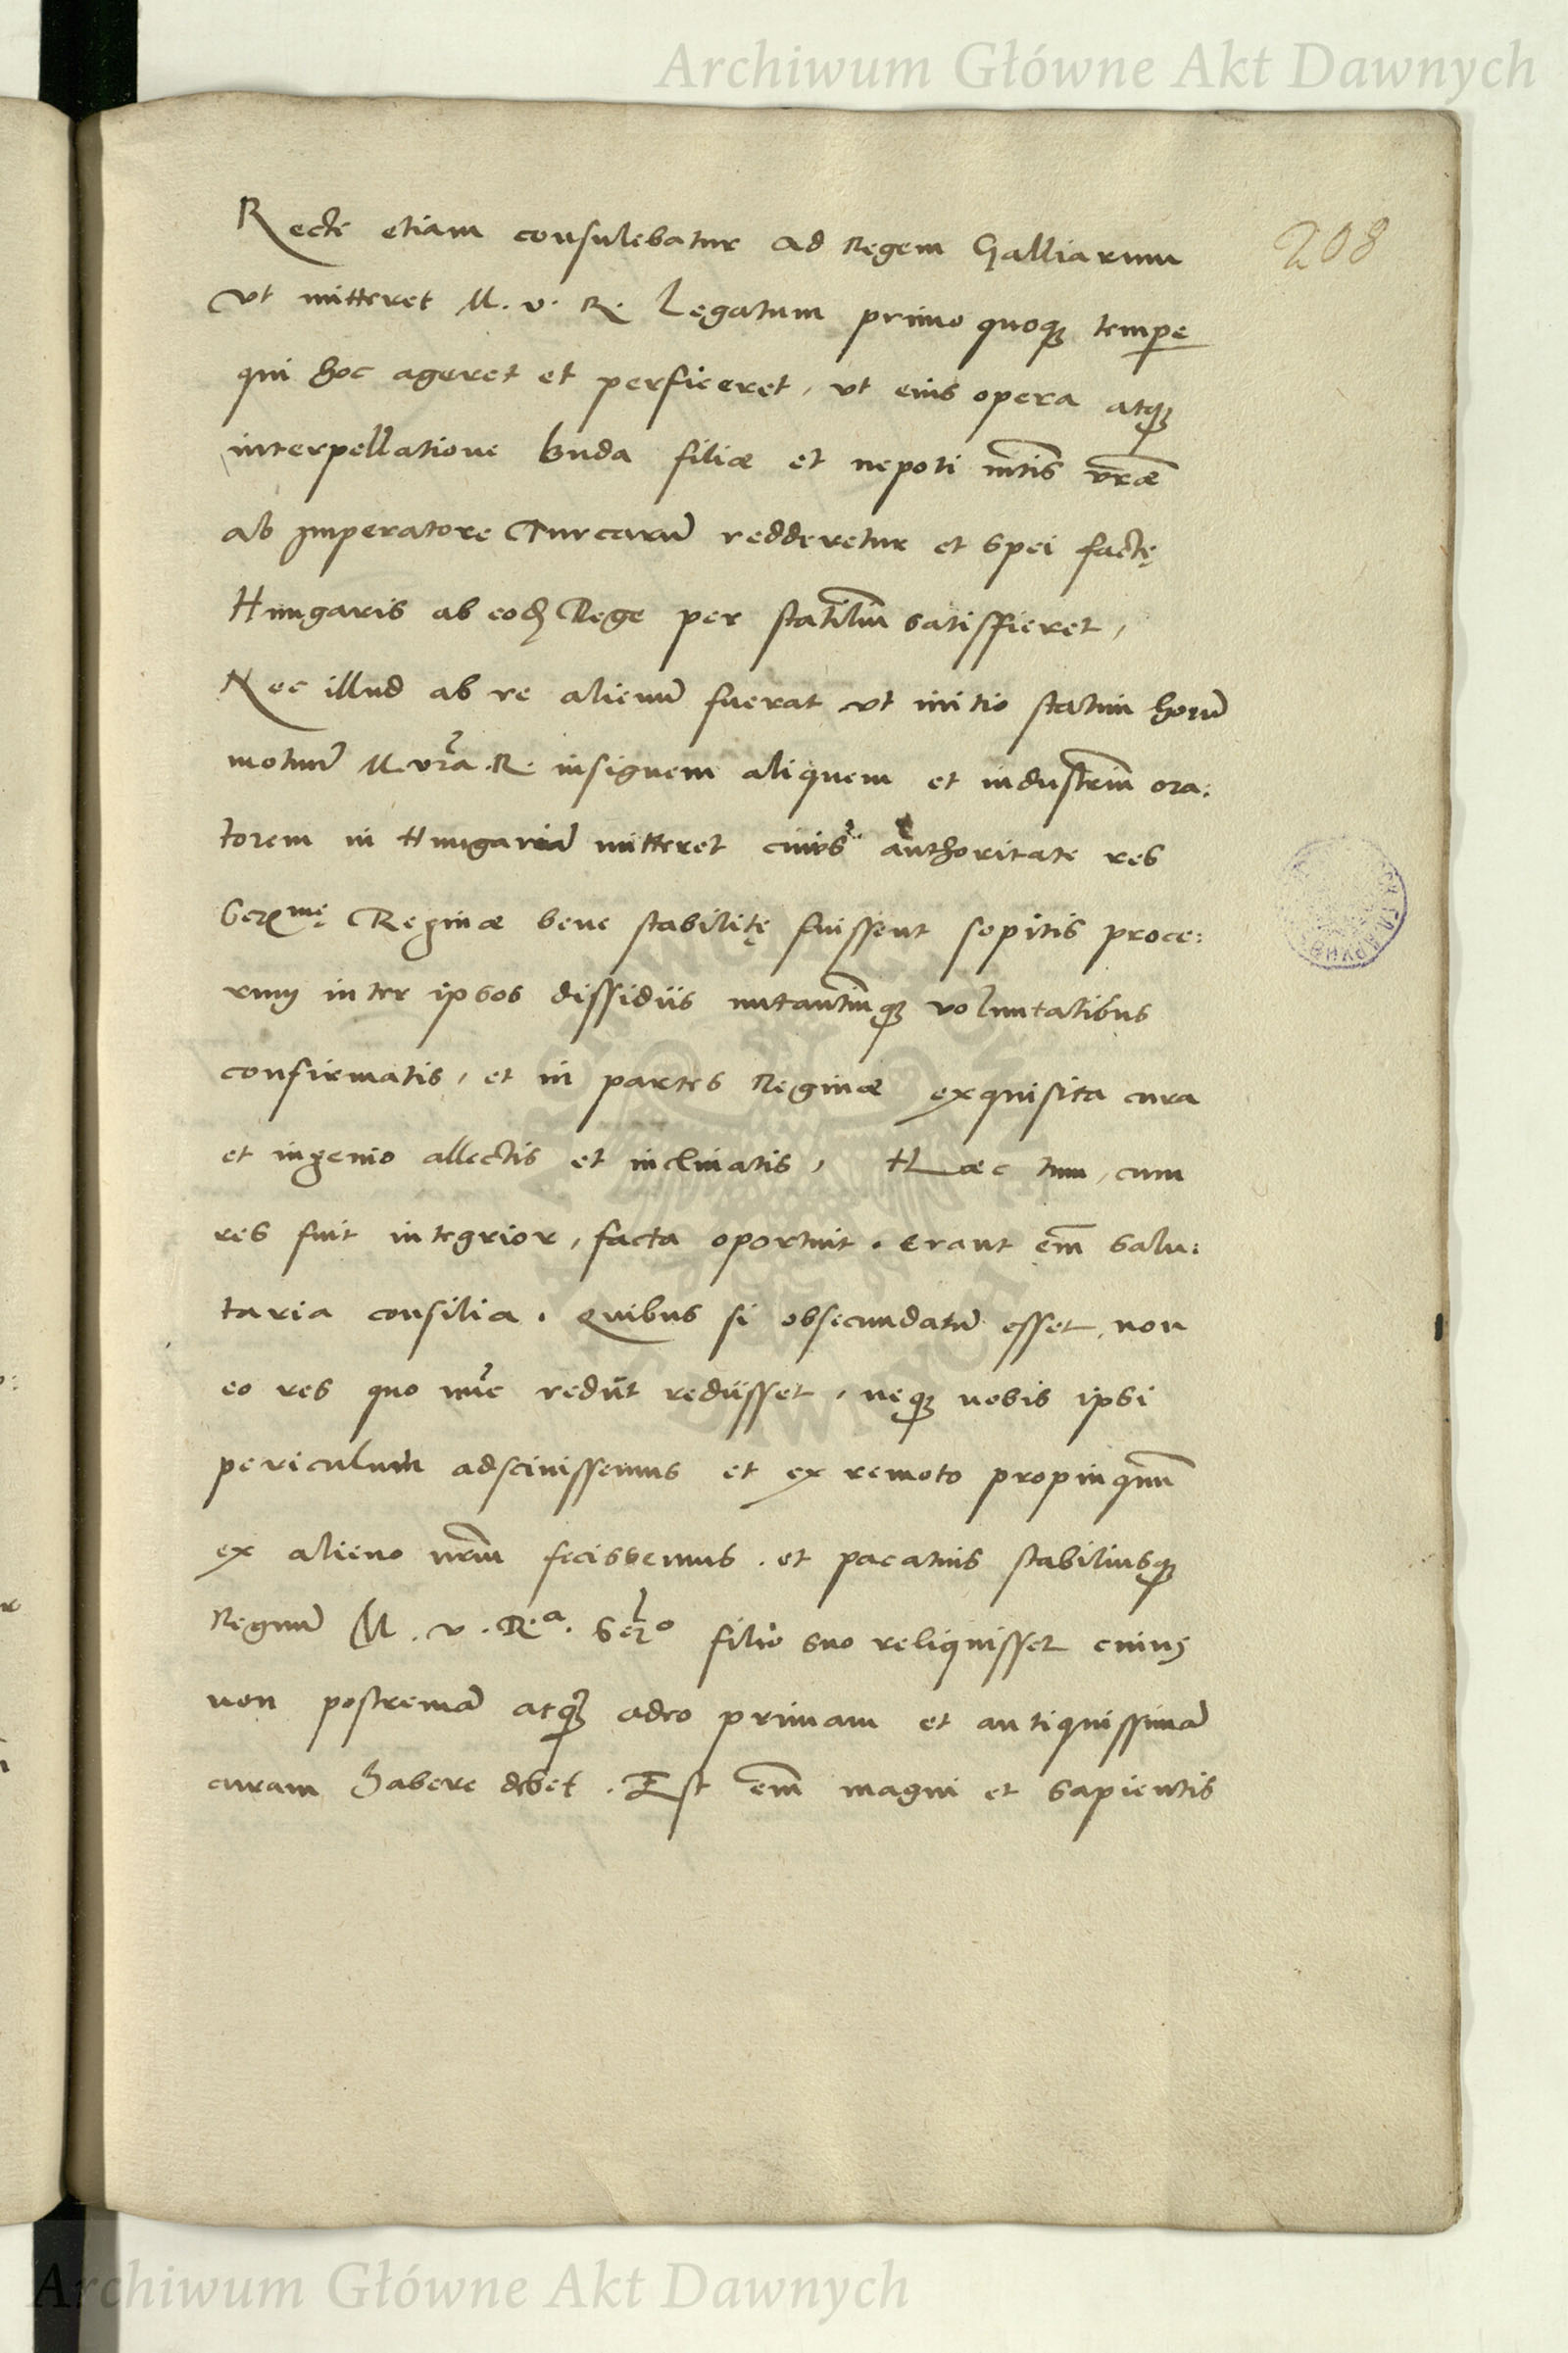 Archiwum Główne Akt Dawnych
208
Recte etiam consulebatur ad Regem Galliarum
vt mitteret M. v. R. Legatum primo quoq; tempe
qui hoc ageret et perficeret, vt eius opera atq;
interpellatione Buda filiæ et nepoti mtis vræ
ab Imperatore Turcarū redderetur et spei factę
Hungaris ab eod Rege per statiliū satisfieret,
Nec illud ab re alienū fuerat vt initio statim horū
motuū M vra R. insignem aliquem et industriū ora:
torem in Hungariā mitteret cuius authoritate res
Sermę Reginæ bene stabilitę fuissent sopitis proce:
rum inter ipsos dissidiis nutantiūq; voluntatibus
confirmatis, et in partes Reginæ exquisita cura
et ingenio allectis et inclinatis, Hæc tum, cum
res fuit integrior, facta oportuit. erant em salu:
taria consilia. Quibus si obsecundatū esset, non
eo res quo nūc rediit rediisset, neq; nobis ipsi
periculum adscivissemus et ex remoto propinquū
ex alieno nrm fecissemus. et pacatius stabiliusq;
Regnū M. v. R.a. Sermo filio suo reliquisset cuius
non postremā atq; adeo primam et antiquissimā
curam habere debet. Est em magni et sapientis
Archiwum Główne Akt Dawnych